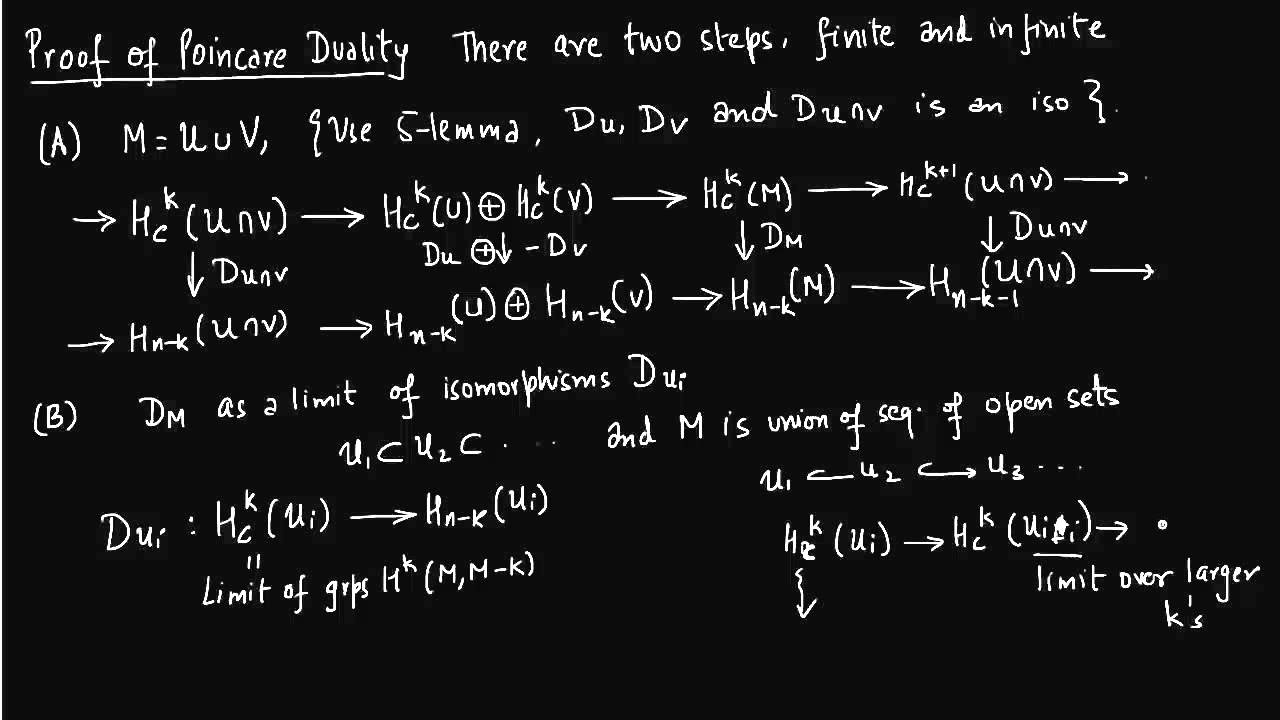 Proof of Poincare Duality There are two steps, finite and infinite
(A) M = U ∪ V, {Use 5-lemma, D_U, D_V and D_{U∩V} is an iso}.
→ H_c^k (U∩V) → H_c^k (U) ⊕ H_c^k (V) → H_c^k (M) → H_c^{k+1} (U∩V) →
↓ D_{U∩V} D_U ⊕↓ -D_V ↓ D_M ↓ D_{U∩V}
→ H_{n-k} (U∩V) → H_{n-k} (U) ⊕ H_{n-k} (V) → H_{n-k} (M) → H_{n-k-1} (U∩V) →
(B) D_M as a limit of isomorphisms D_{U_i}
U_1 ⊂ U_2 ⊂ ···· and M is union of seq. of open sets
U_1 ⊂ U_2 ↪ U_3 ···
D_{U_i} : H_c^k (U_i) → H_{n-k} (U_i)
H_c^k (U_i) → H_c^k (U_i) →
=
Limit of grps H^k (M, M-K)
↓ limit over larger
k's